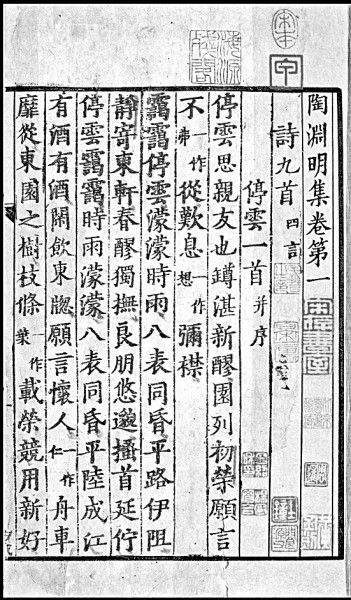 陶淵明集卷第一
詩九首 四言
停雲一首 并序
停雲思親友也罇湛新醪園列初榮願言
不一作弗從歎息一作想彌襟
靄靄停雲濛濛時雨八表同昏平路伊阻
靜寄東軒春醪獨撫良朋悠邈搔首延佇
停雲靄靄時雨濛濛八表同昏平陸成江
有酒有酒閑飲東牎願言懷人一作仁舟車
靡從東園之樹枝條一作葉載榮競用新好
宋本
甲